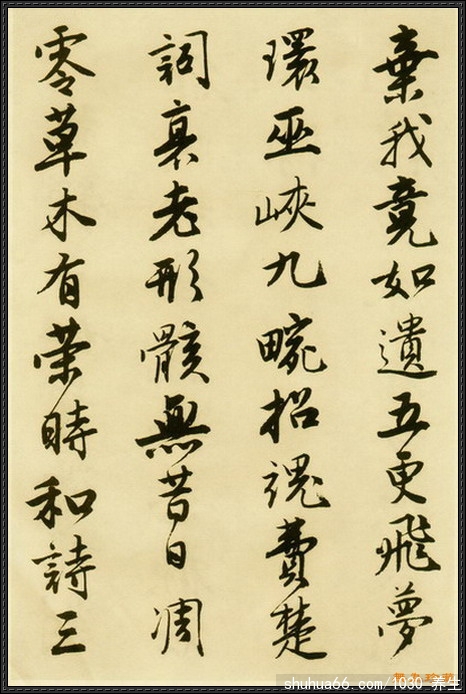 棄我竟如遺五更飛夢
環巫峽九畹招魂費楚
詞衰老形骸無昔日凋
零草木有榮時和詩三
shuhua66.com/1030_养生